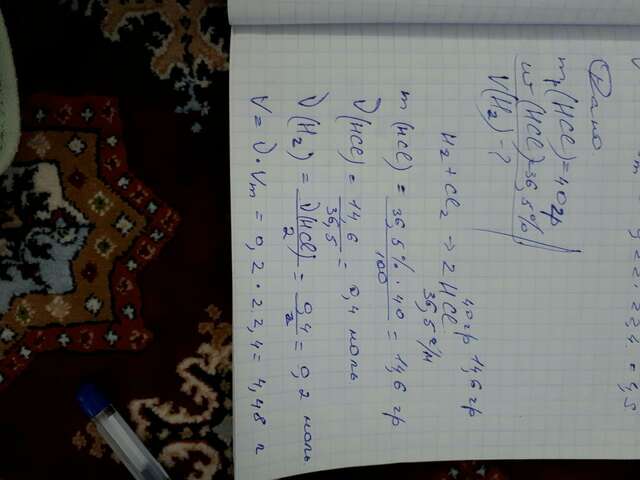 Дано:
m, (HCl) = 40гр
w (HCl) = 36,5%
V(H₂) - ?
40гр 14,6гр
H₂ + Cl₂ → 2HCl
36,5 г/м
m (HCl) = 36,5% · 40 / 100 = 14,6 гр
ν (HCl) = 14,6 / 36,5 = 0,4 моль
ν (H₂) = ν(HCl) / 2 = 0,4 / 2 = 0,2 моль
V = ν · Vm = 0,2 · 22,4 = 4,48 л